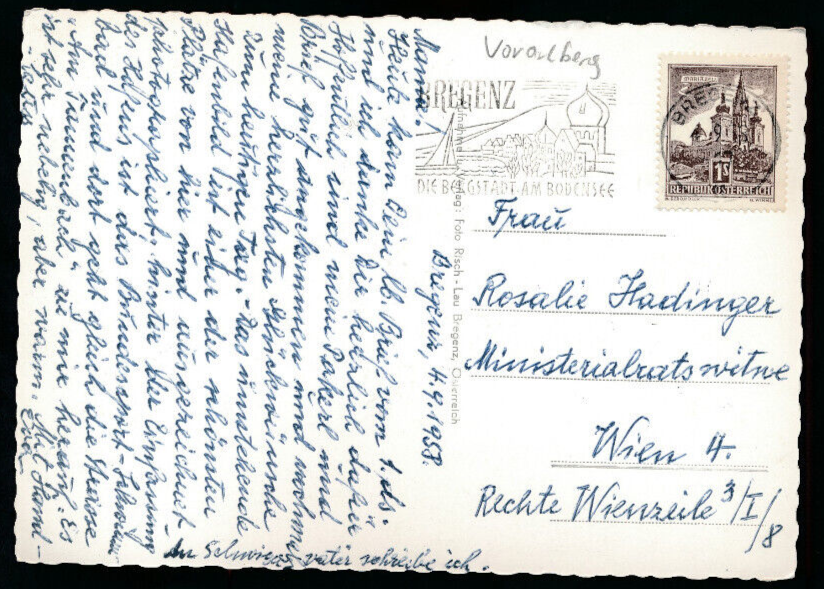 Bregenz, 4.9.1958.
Mama!
Heute kam Dein lb. Brief vom 1. ds.
und ich danke Dir herzlich dafür.
Hoffentlich sind mein Paket und
Brief gut angekommen und nochmals
meine herzlichsten Glückwünsche
zum heutigen Tag. - Das umstehende
Hafenbild ist einer der schönsten
Plätze von hier und ausgezeichnet
photographiert, hinter der Einfassung
des Hafens ist das Bundessport-Schwimm-
bad und dort geht gleich die Strasse
"Am Tannenbach" zu mir herauf. Es
ist sehr neblig, aber warm.
An Schwiegervater schreibe ich.
Vorarlberg
BREGENZ
DIE BERGSTADT AM BODENSEE
MARIAZELL
1 S
REPUBLIK ÖSTERREICH
Verlag: Foto Risch - Lau Bregenz, Österreich
Frau
Rosalie Hadinger
Ministerialratswitwe
Wien 4.
Rechte Wienzeile 3/I/8